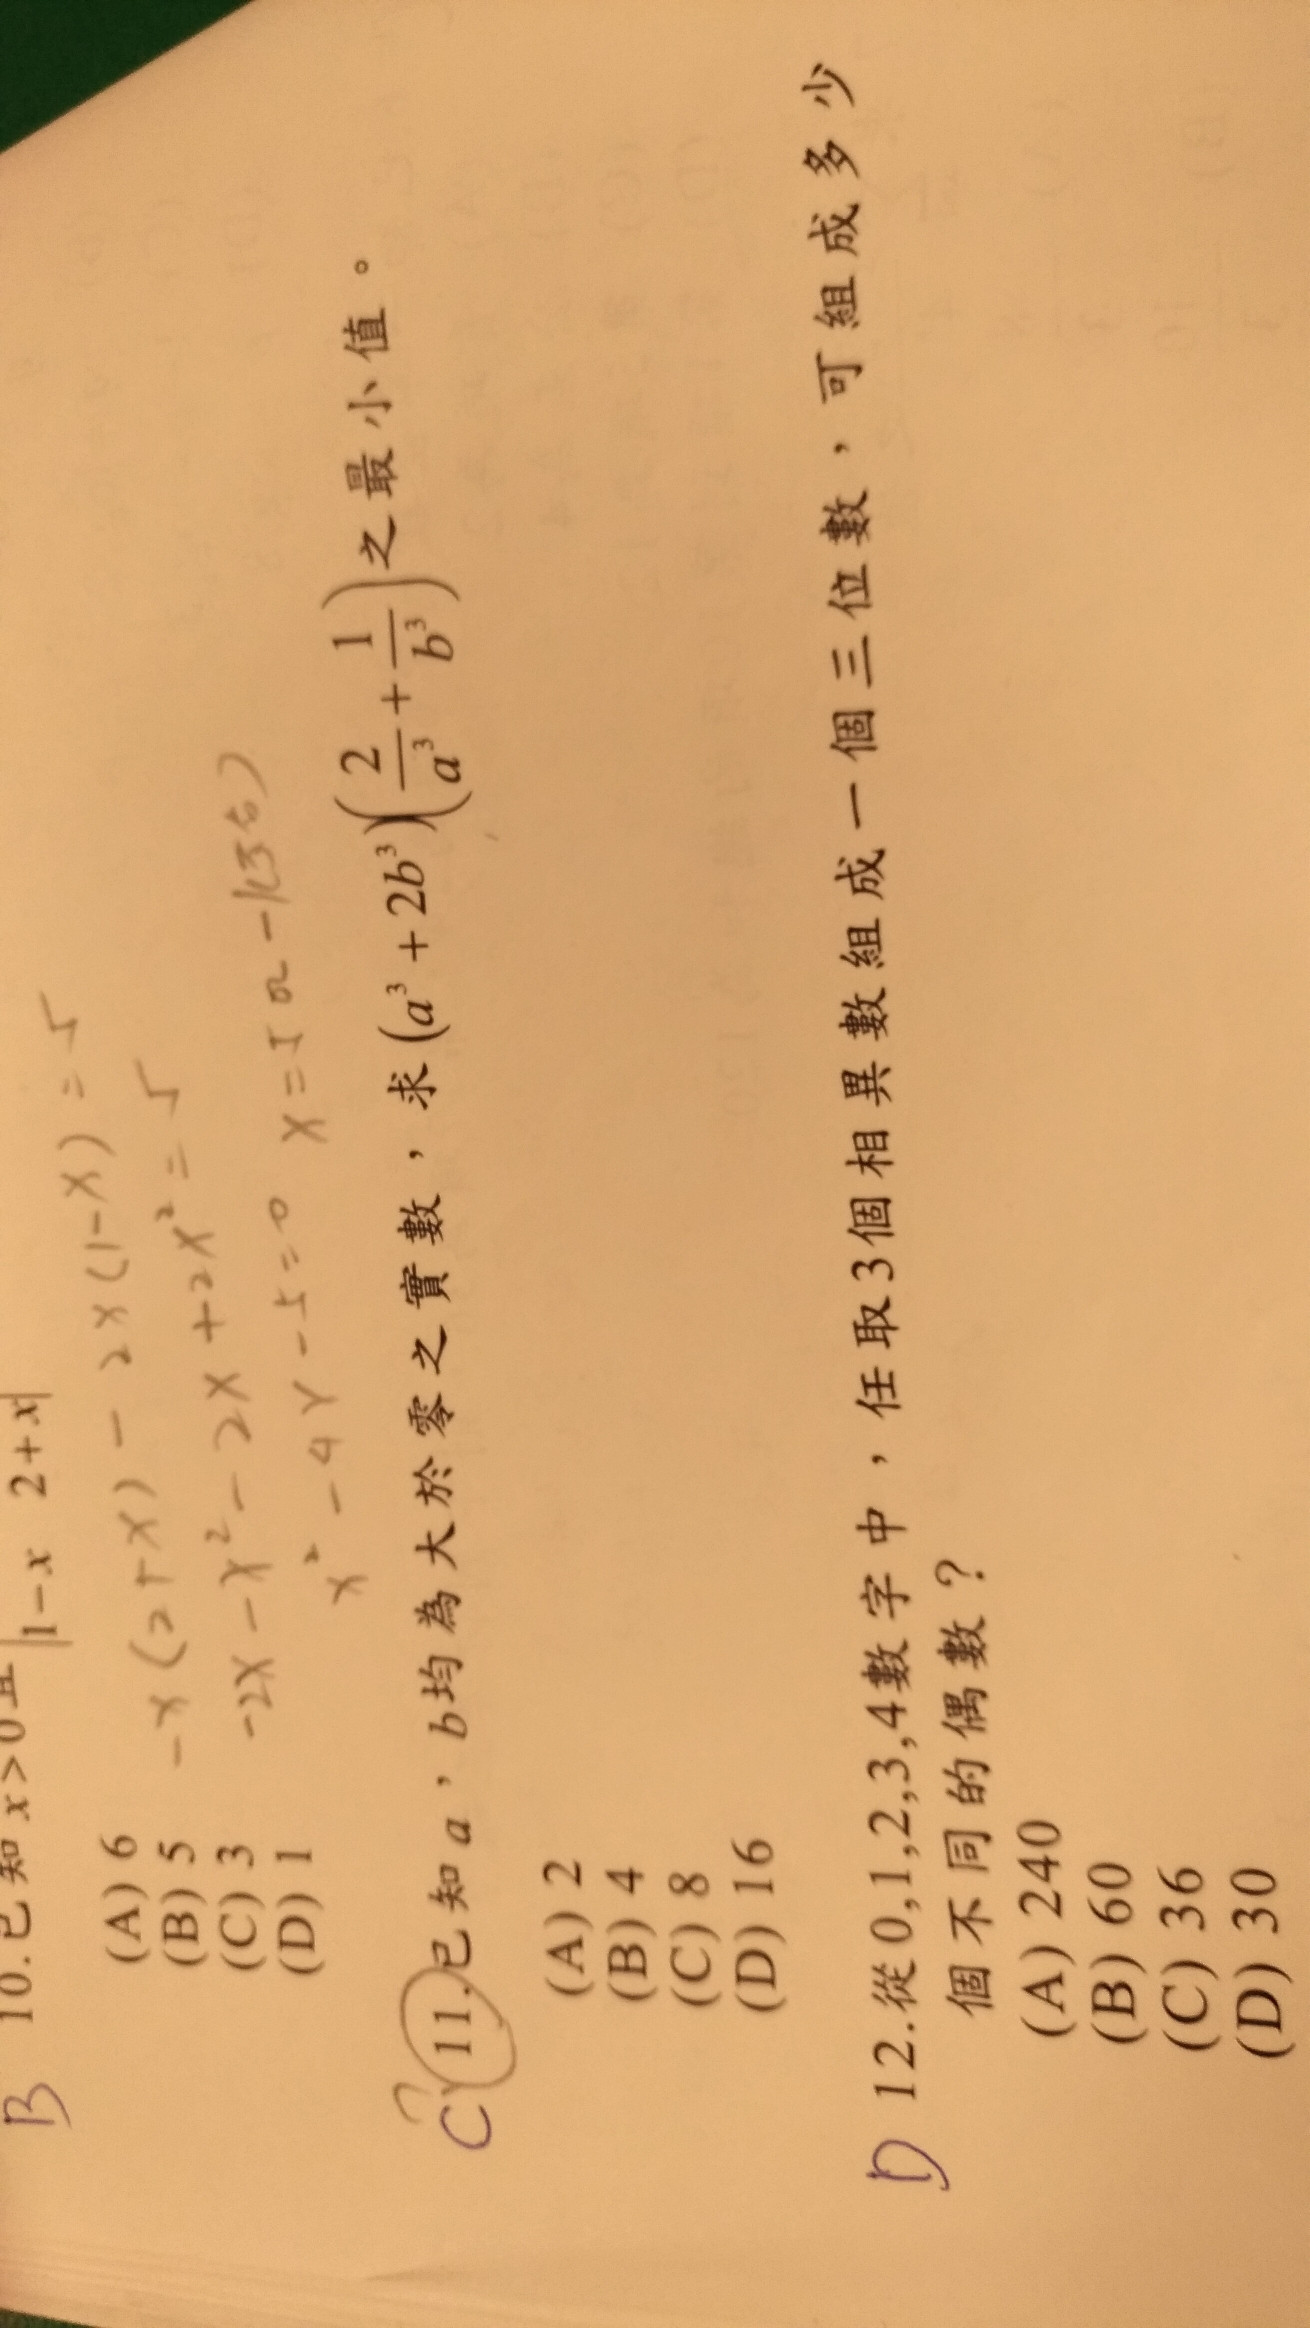 B 10.已知 x>0且 |1-x 2+x|
-x(2+x)-2x(1-x)=5
-2x-x²-2x+2x²=5
x²-4x-5=0 x=5 or -1(不合)
(A) 6
(B) 5
(C) 3
(D) 1
C 11.已知a,b均為大於零之實數,求(a³+2b³)(2/a³+1/b³)之最小值。
(A) 2
(B) 4
(C) 8
(D) 16
D 12.從0,1,2,3,4數字中,任取3個相異數組成一個三位數,可組成多少
個不同的偶數?
(A) 240
(B) 60
(C) 36
(D) 30